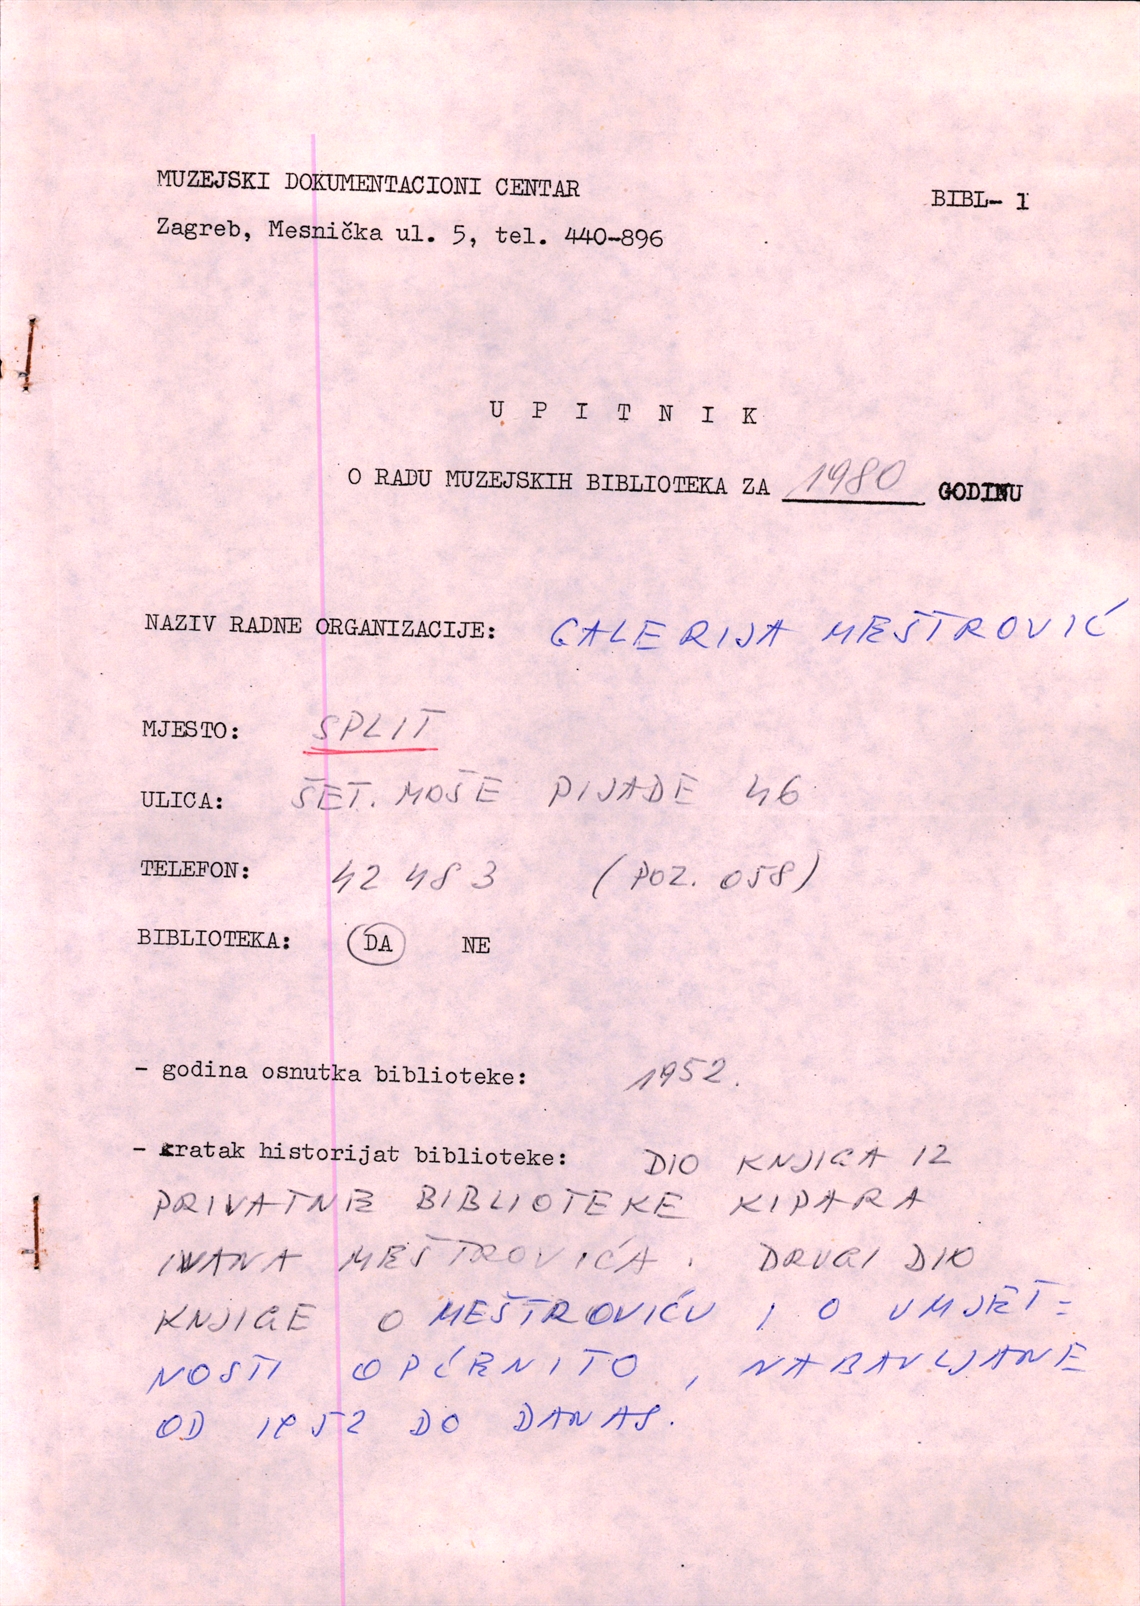 MUZEJSKI DOKUMENTACIONI CENTAR
BIBL- 1
Zagreb, Mesnička ul. 5, tel. 440-896
U P I T N I K
O RADU MUZEJSKIH BIBLIOTEKA ZA 1980 GODINU
NAZIV RADNE ORGANIZACIJE: GALERIJA MEŠTROVIĆ
MJESTO: SPLIT
ULICA: ŠET. MOŠE PIJADE 46
TELEFON: 42 483 (POZ. 058)
BIBLIOTEKA: DA NE
- godina osnutka biblioteke: 1952.
- kratak historijat biblioteke: DIO KNJIGA IZ
PRIVATNE BIBLIOTEKE KIPARA
IVANA MEŠTROVIĆA. DRUGI DIO
KNJIGE O MEŠTROVIĆU I O UMJET=
NOSTI OPĆENITO, NABAVLJANE
OD 1952 DO DANAS.